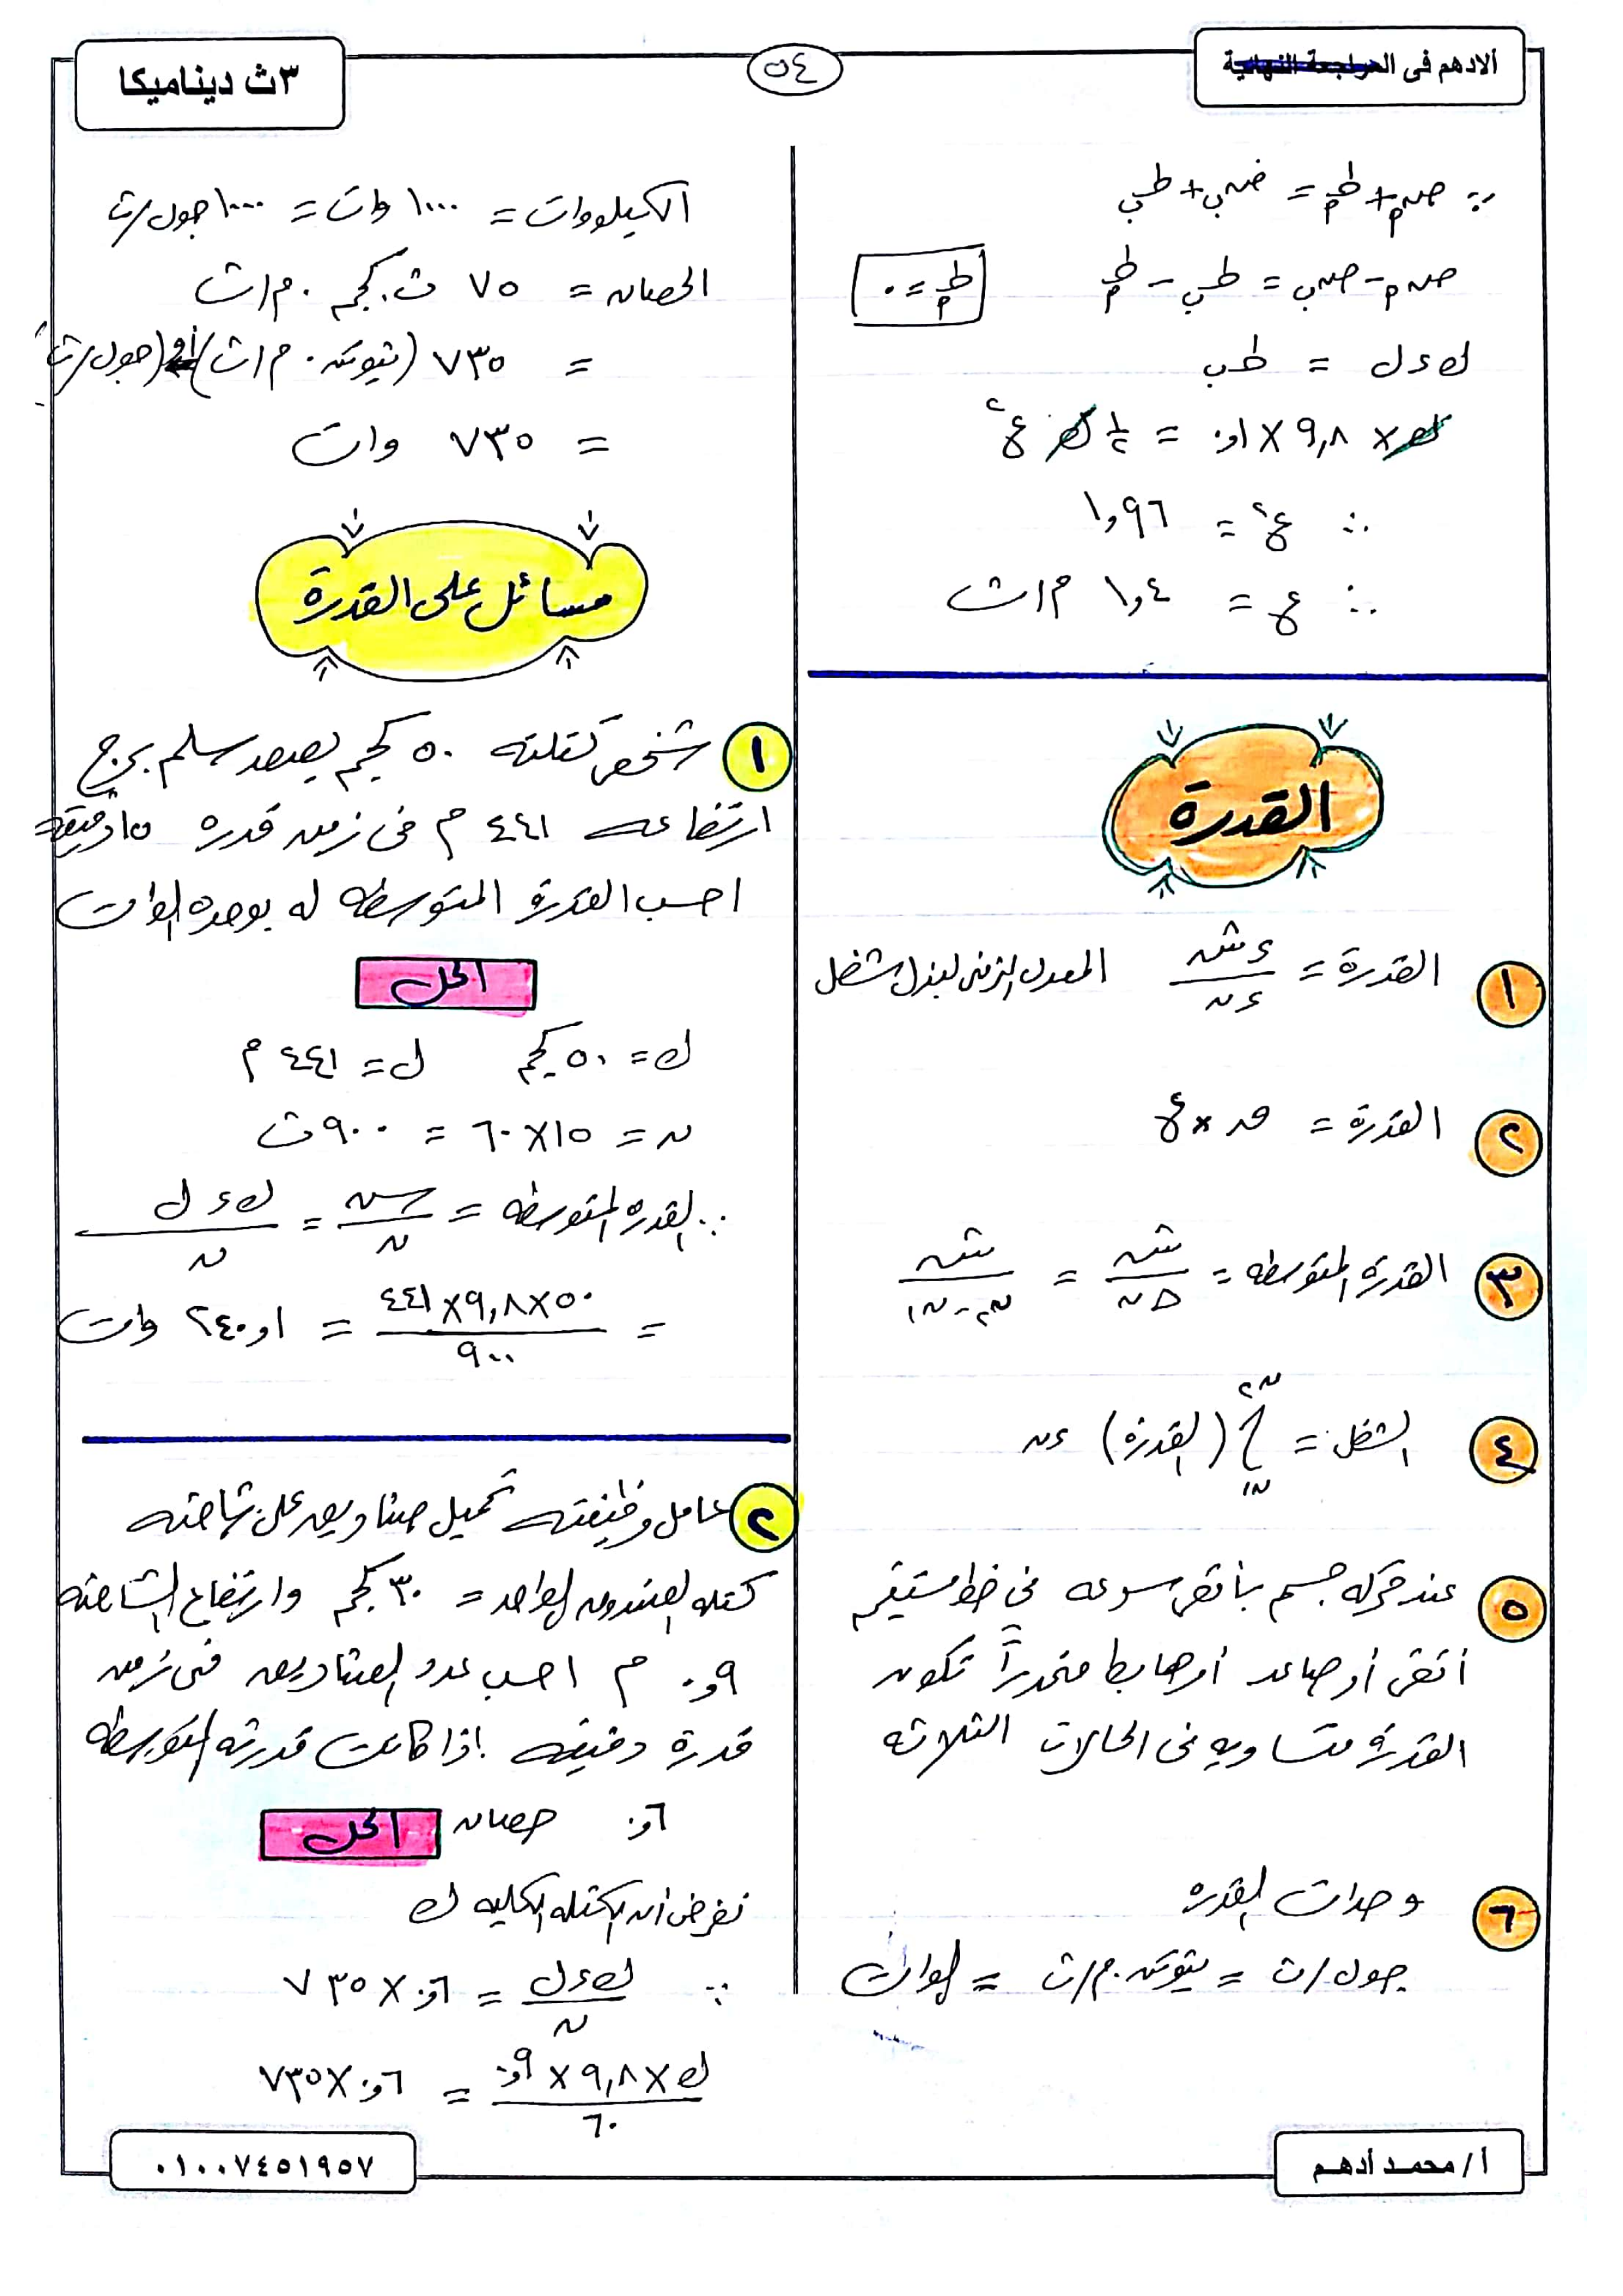 ألادهم فى المراجعة النهائية
٥٤
٣ث ديناميكا
∵ ض م + ط م = ض ب + ط ب
ض م - ض ب = ط ب - ط م
ط م = ٠
ك ء ل = ط ب
ك × ٩,٨ × ٠,١ = ١/٢ ك ع٢
∴ ع٢ = ١,٩٦
∴ ع = ١,٤ م/ث
القدرة
١ القدرة = ءش/ءن المعدل الزمنى لبذل شغل
٢ القدرة = ق × ع
٣ القدرة المتوسطه = ش/Δن = ش/(ن٢ - ن١)
٤ الشغل = ∫ن١ ن٢ (القدرة) ءن
٥ عند حركة جسم بأقصى سرعه فى خط مستقيم
أفقى أو صاعد أو هابط منحدراً تكون
القدرة متساويه فى الحالات الثلاثه
٦ وحدات القدره
جول/ث = نيوتن.م/ث = الوات
الكيلووات = ١٠٠٠ وات = ١٠٠٠ جول/ث
الحصان = ٧٥ ث.كجم.م/ث
= ٧٣٥ (نيوتن.م/ث) أو (جول/ث)
= ٧٣٥ وات
مسائل على القدرة
١ شخص كتلته ٥٠ كجم يصعد سلم برج
ارتفاعه ٤٤١ م فى زمن قدره ١٥ دقيقة
احسب القدرة المتوسطه له بوحده الوات
الحل
ك = ٥٠ كجم ل = ٤٤١ م
ن = ١٥ × ٦٠ = ٩٠٠ ث
∴ القدره المتوسطه = ش/ن = ك ء ل/ن
= ٥٠×٩,٨×٤٤١/٩٠٠ = ٢٤٠,١ وات
٢ عامل وظيفته تحميل صناديق على شاحنه
كتله الصندوق الواحد = ٣٠ كجم وارتفاع الشاحنه
٠,٩ م احسب عدد الصناديق فى زمن
قدرة دقيقه إذا كانت قدرته المتوسطه
٠,٦ حصان
الحل
نفرض أن الكتله الكليه ك
∵ ك ء ل/ن = ٠,٦ × ٧٣٥
ك × ٩,٨ × ٠,٩/٦٠ = ٠,٦ × ٧٣٥
أ/ محمد أدهم
٠١٠٠٧٤٥١٩٥٧